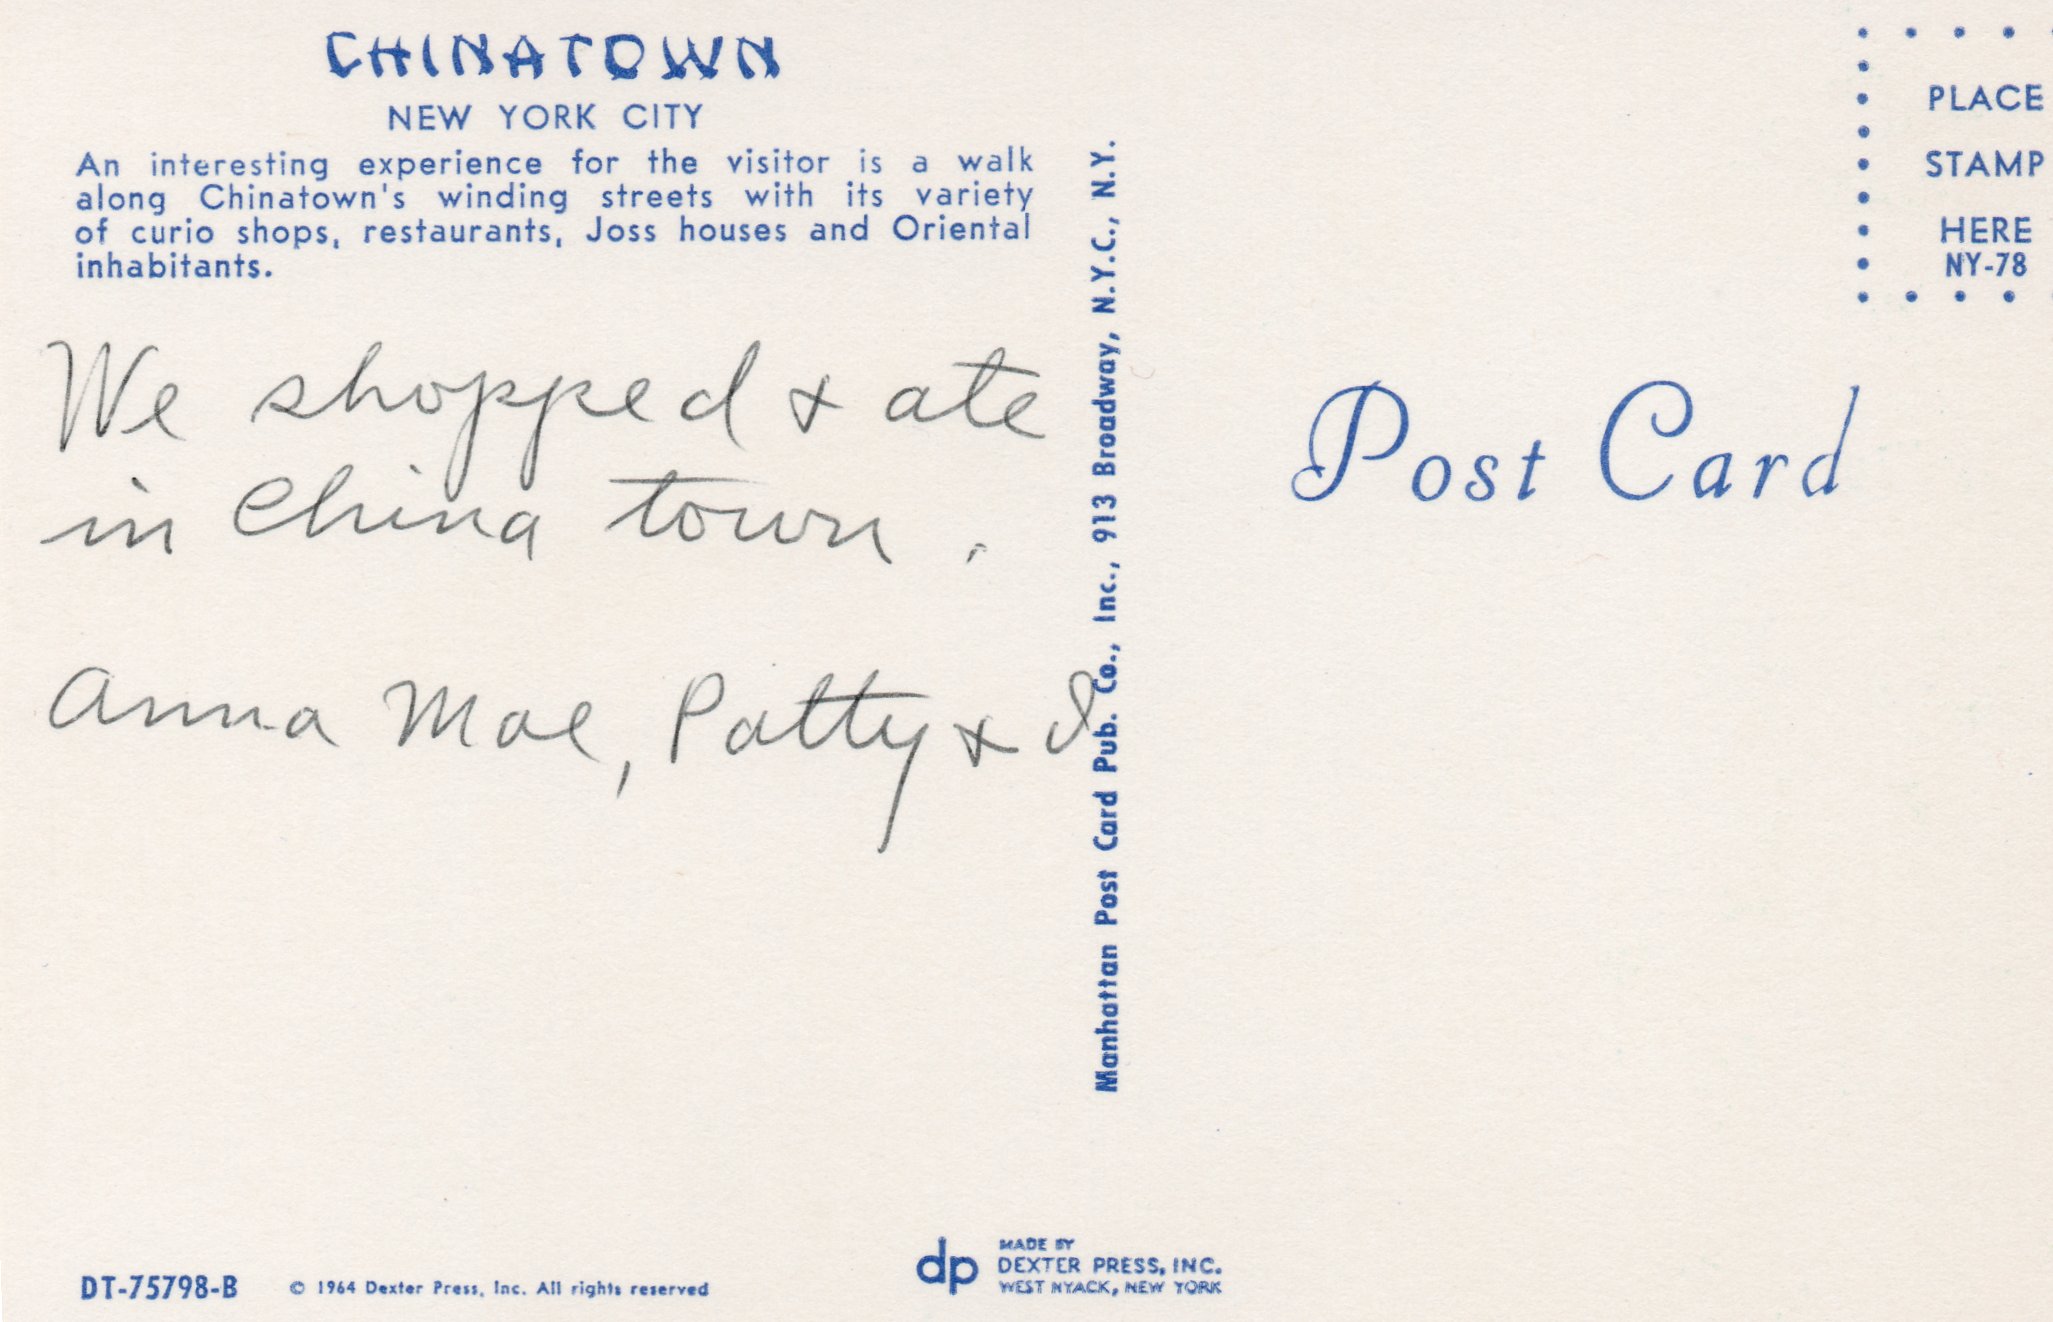 CHINATOWN
NEW YORK CITY
An interesting experience for the visitor is a walk
along Chinatown's winding streets with its variety
of curio shops, restaurants, Joss houses and Oriental
inhabitants.
We shopped & ate
in China town.
Anna Mae, Patty & I
DT-75798-B
© 1964 Dexter Press, Inc. All rights reserved
Manhattan Post Card Pub. Co., Inc., 913 Broadway, N.Y.C., N.Y.
dp
MADE BY
DEXTER PRESS, INC.
WEST NYACK, NEW YORK
PLACE
STAMP
HERE
NY-78
Post Card